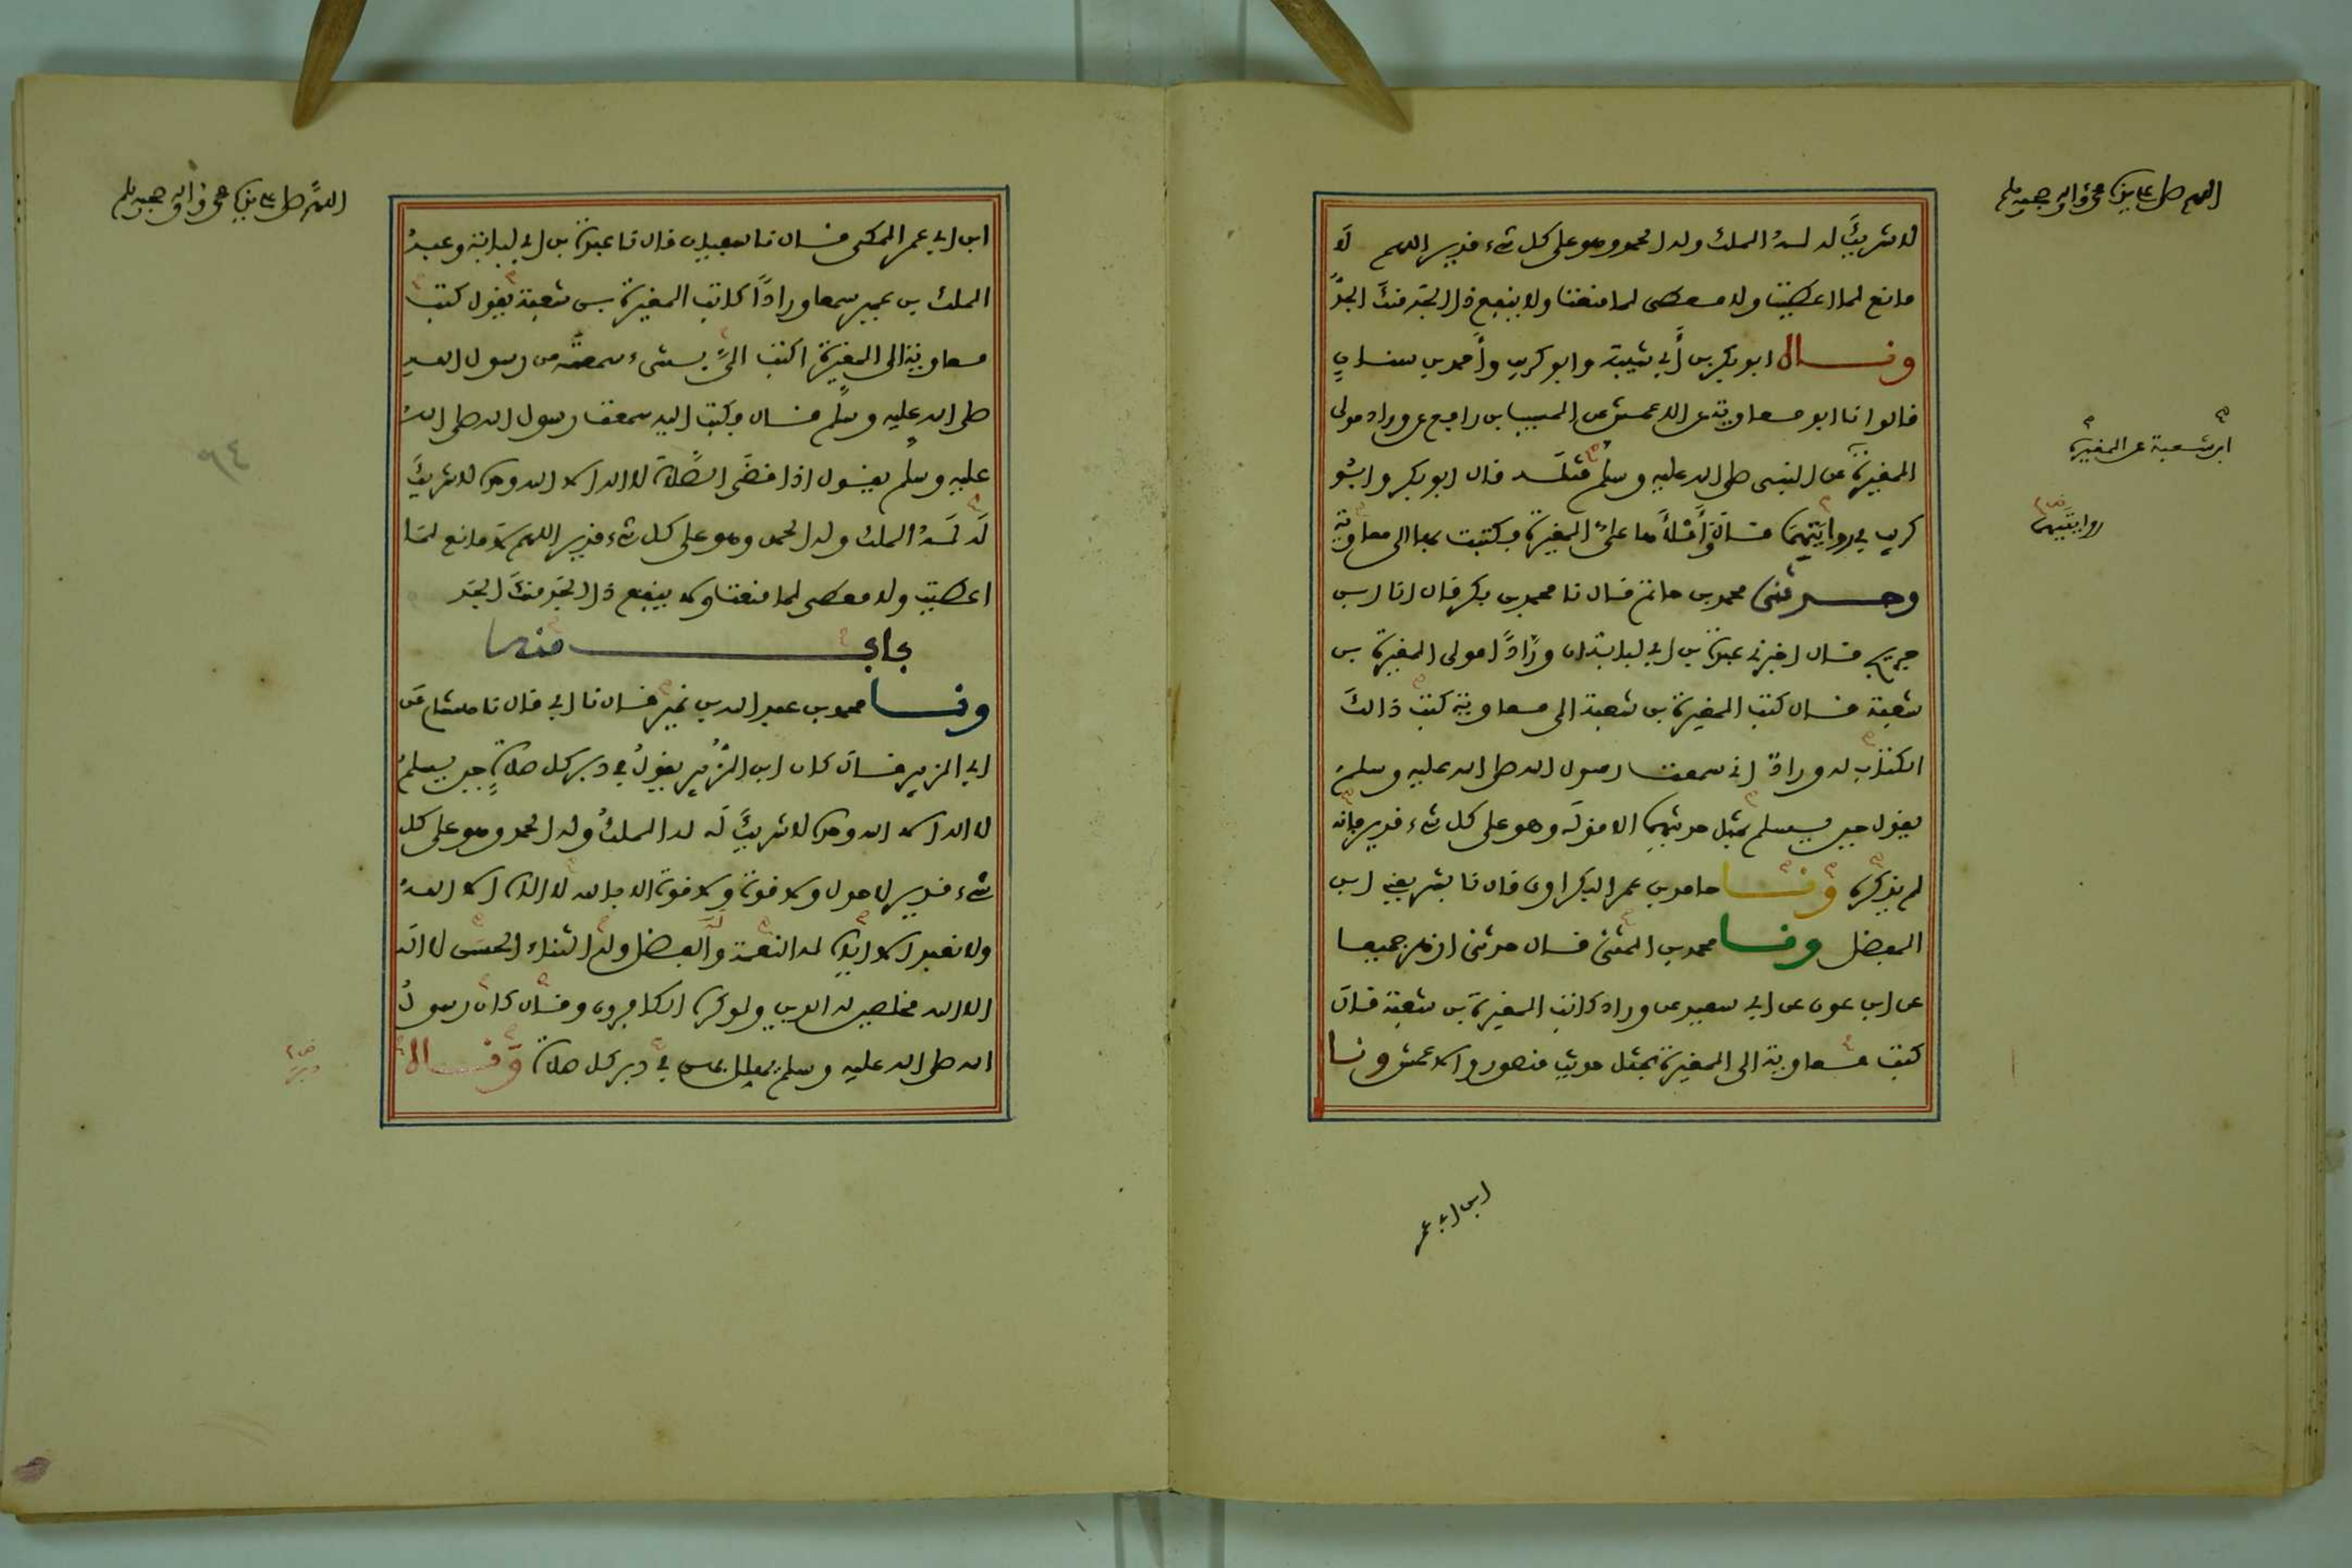 اللهم صل على نبينا محمد وآله وصحبه وسلم
لا شريك له له الملك وله الحمد وهو على كل شىء قدير اللهم لا
مانع لما اعطيت ولا معطى لما منعت ولا ينفع ذا الجد منك الجد
وقال ابو بكر بن أبي شيبة وابو كريب وأحمد بن سنان
قالوا نا ابو معاوية عن الاعمش عن المسيب بن رافع عن وراد مولى
المغيرة عن النبى صلى الله عليه وسلم مثله قال ابو بكر وابو
كريب في روايتهما قال وأملأها على المغيرة وكتبت بها الى معاوية
وحدثنى محمد بن حاتم قال نا محمد بن بكر قال انا ابن
جريج قال اخبرني عبدة بن ابي لبابة ان ورادا مولى المغيرة بن
شعبة قال كتب المغيرة بن شعبة الى معاوية كتب ذالك
الكتاب له وراد اني سمعت رسول الله صلى الله عليه وسلم
يقول حين يسلم بمثل حديثهما الا قوله وهو على كل شىء قدير فانه
لم يذكره ونا حامد بن عمر البكراوى قال نا بشر يعني ابن
المفضل ونا محمد بن المثنى قال حدثنى ازهر جميعا
عن ابن عون عن ابي سعيد عن وراد كاتب المغيرة بن شعبة قال
كتب معاوية الى المغيرة بمثل حديث منصور والاعمش ونا
ابن شعبة عن المغيرة
روايتيهما
ابن ابي عمر
اللهم صل على نبينا محمد وآله وصحبه وسلم
ابن ابي عمر المكى قال نا سفيان قال نا عبدة بن ابي لبابة وعبد
الملك بن عمير سمعا ورادا كاتب المغيرة بن شعبة يقول كتب
معاوية الى المغيرة اكتب الى بشىء سمعته من رسول الله
صلى الله عليه وسلم قال فكتب اليه سمعت رسول الله صلى الله
عليه وسلم يقول اذا قضى الصلاة لا اله الا الله وحده لا شريك
له له الملك وله الحمد وهو على كل شىء قدير اللهم لا مانع لما
اعطيت ولا معطى لما منعت ولا ينفع ذا الجد منك الجد
باب منه
ونا محمد بن عبد الله بن نمير قال نا ابي قال نا هشام عن
ابي الزبير قال كان ابن الزبير يقول في دبر كل صلاة حين يسلم
لا اله الا الله وحده لا شريك له له الملك وله الحمد وهو على كل
شىء قدير لا حول ولا قوة ولا قوة الا بالله لا اله الا الله
ولا نعبد الا اياه له النعمة وله الفضل وله الثناء الحسن لا اله
الا الله مخلصين له الدين ولو كره الكافرون وقال كان رسول
الله صلى الله عليه وسلم يهلل بهن في دبر كل صلاة وقال
٩٤
دبر